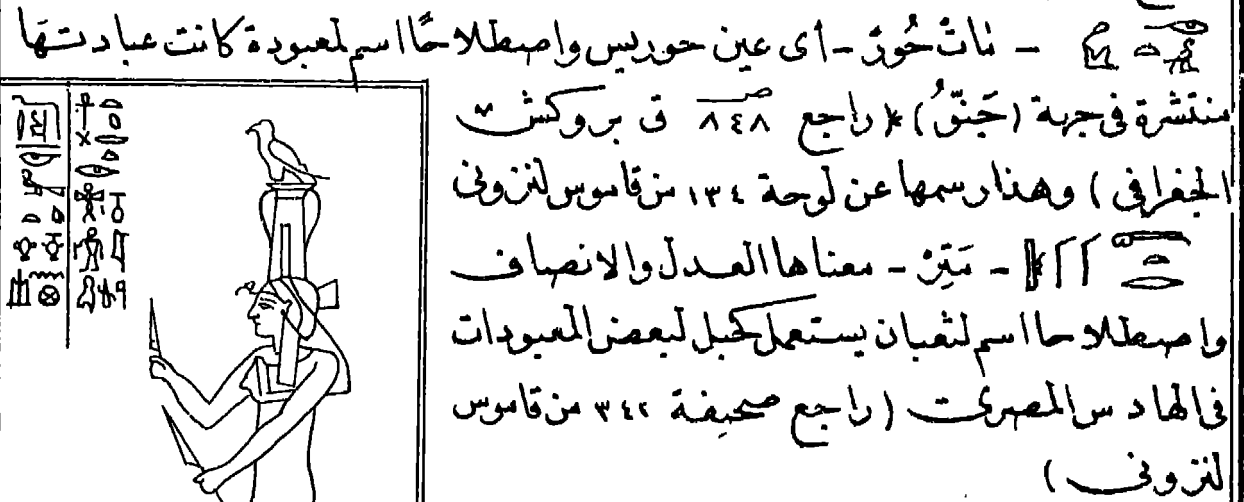 – نات حُورْ – أى عين حوريس واصطلاحًا اسم لمعبودة كانت عبادتها
منتشرة فى جهة (حَبنّقُ) (راجع صـ ٨٤٨ ق بروكش
الجغرافى) وهذا رسمها عن لوحة ١٣٤ من قاموس لنزونى
– مَتِرْ – معناها العدل والانصاف
واصطلاحا اسم لثعبان يستعمل كحبل لبعض المعبودات
فى الهادس المصرى (راجع صحيفة ٣٤٢ من قاموس
لنزونى)